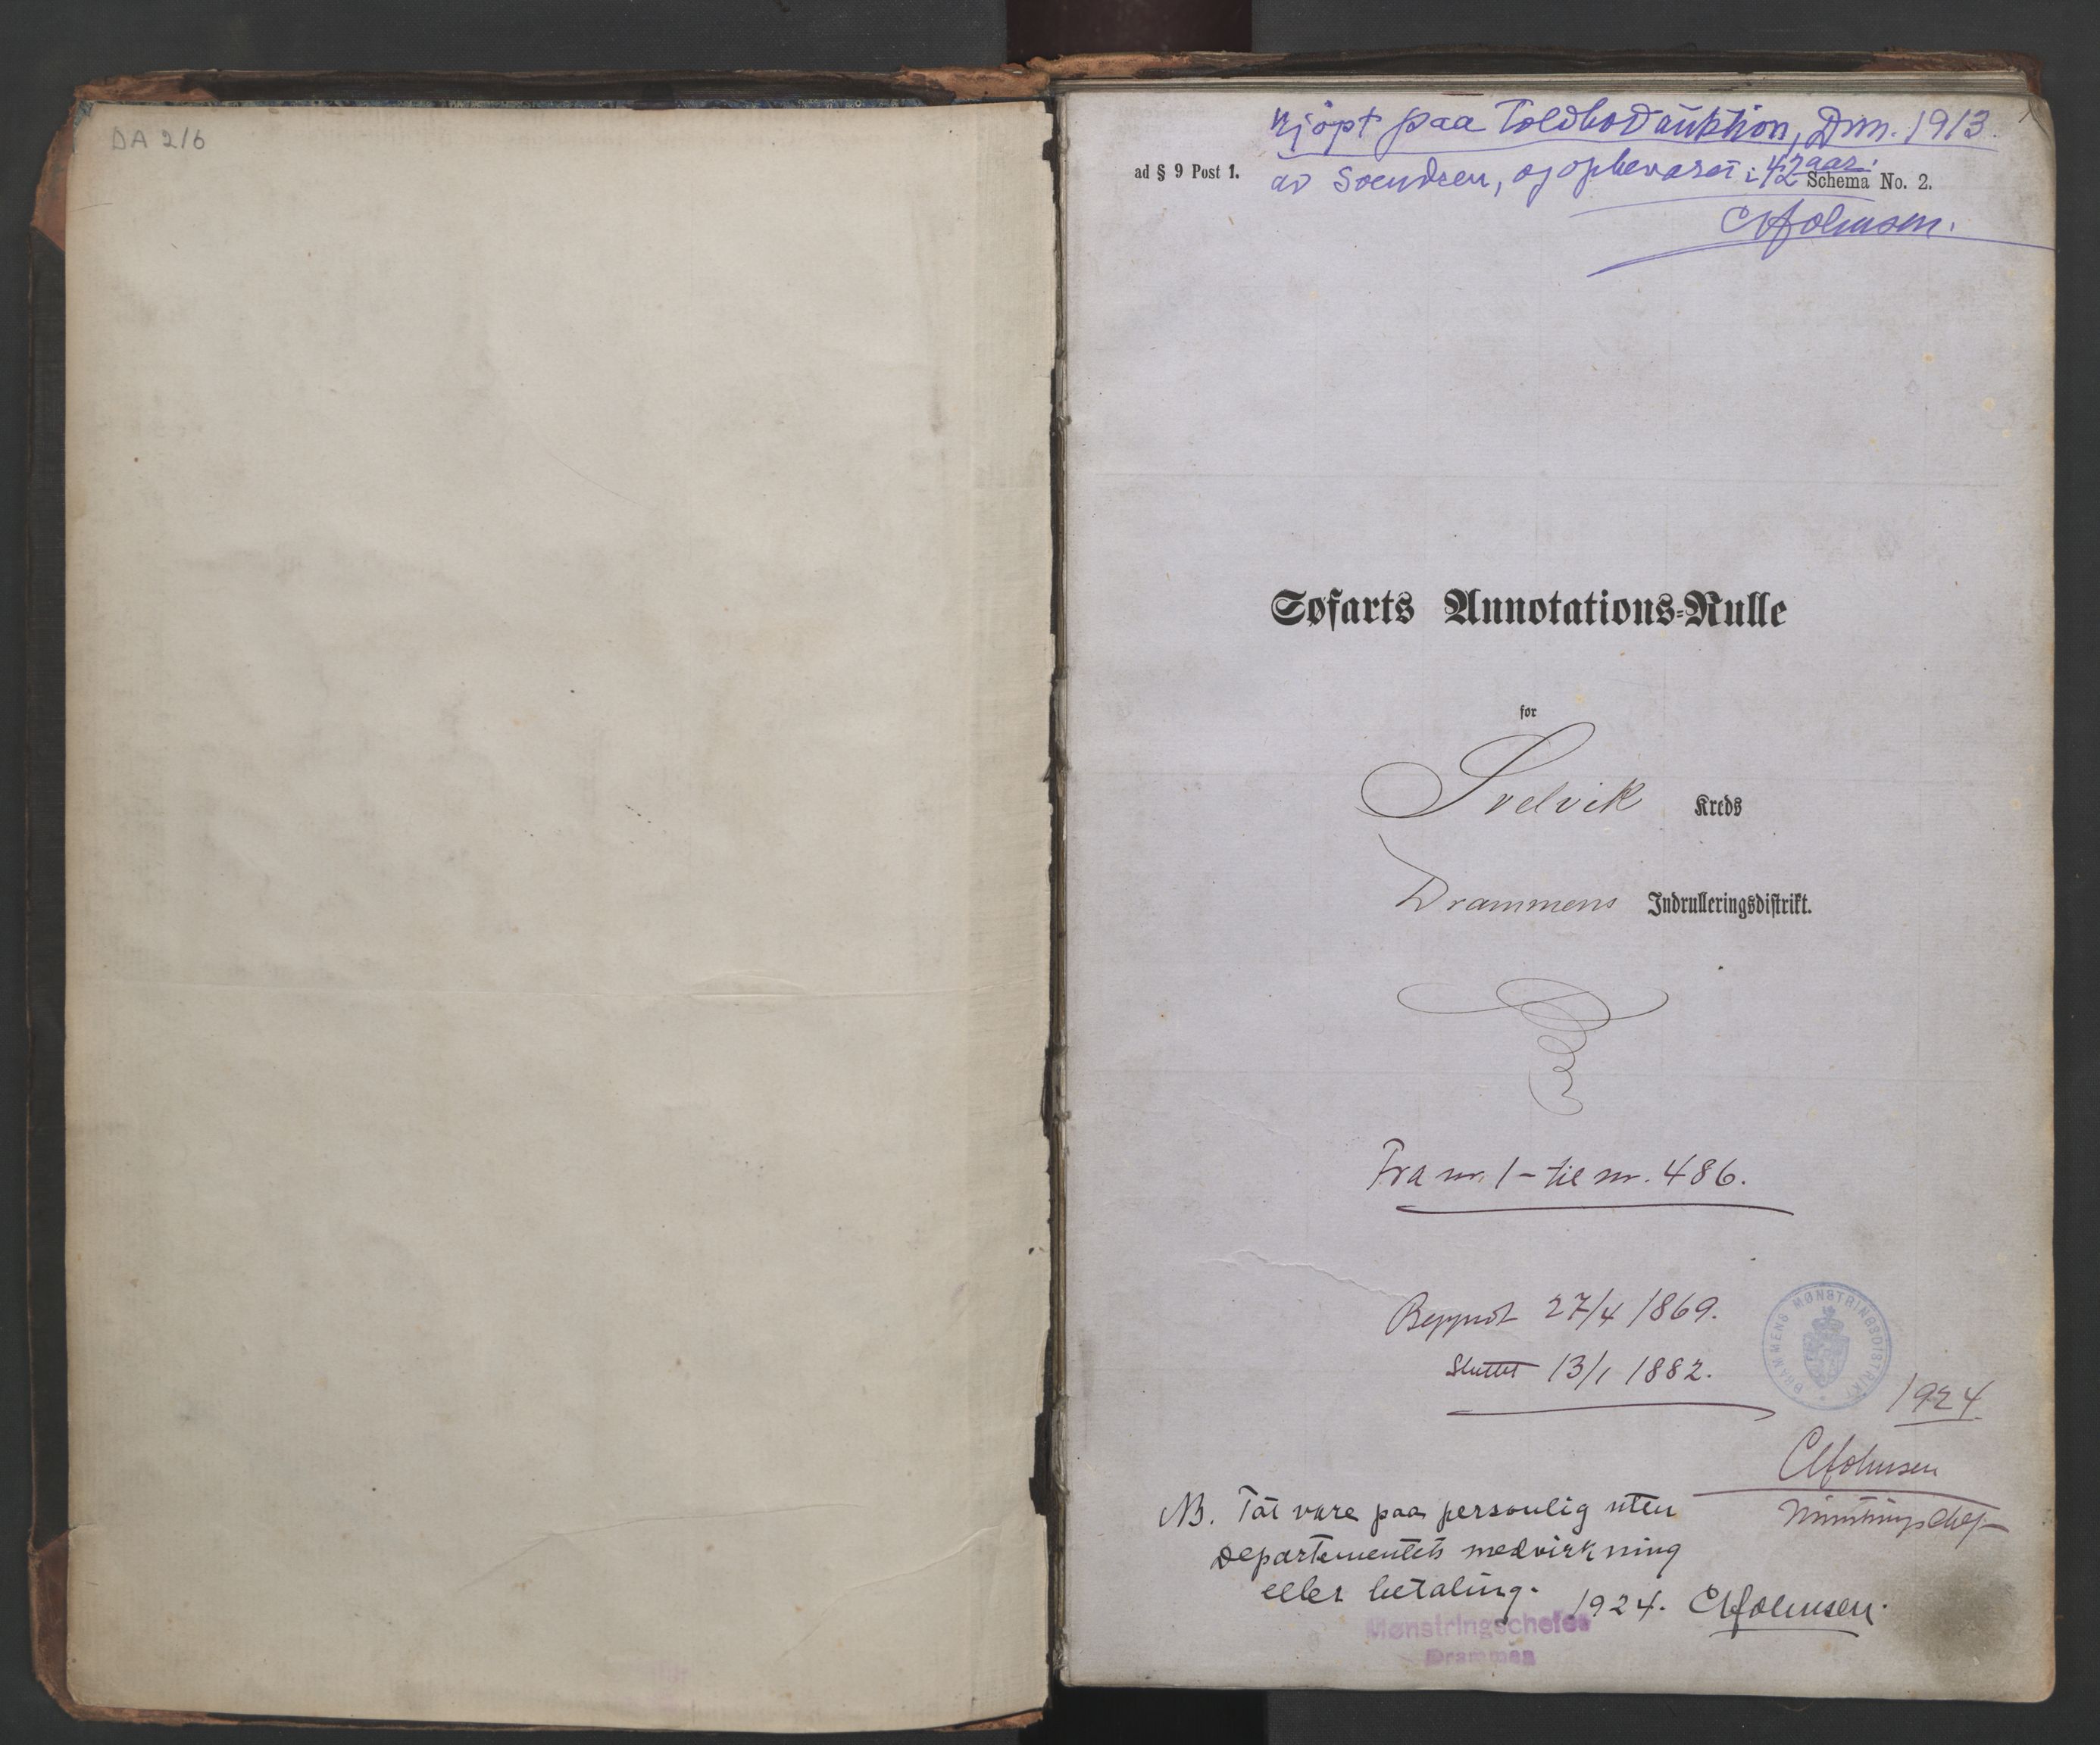 DA 216
Kjöpt paa Toldbodauktion, Drm. 1913.
ad § 9 Post 1.
av Svendsen, og opbevaret i 42 aar.
Schema No. 2.
Johnsen.
Søfarts Annotations-Rulle
for
Svelvik Kreds
Drammens Indrulleringsdistrikt.
Fra nr. 1 - til nr. 486.
Begyndt 27/4 1869.
Sluttet 13/1 1882.
DRAMMENS MØNSTRINGSDISTRIKT
1924
Johnsen
Mønstringschef
NB. Tat vare paa personlig uten
departementets medvirkning
eller betaling. 1924. Johnsen.
Mønstringschefen
Drammen